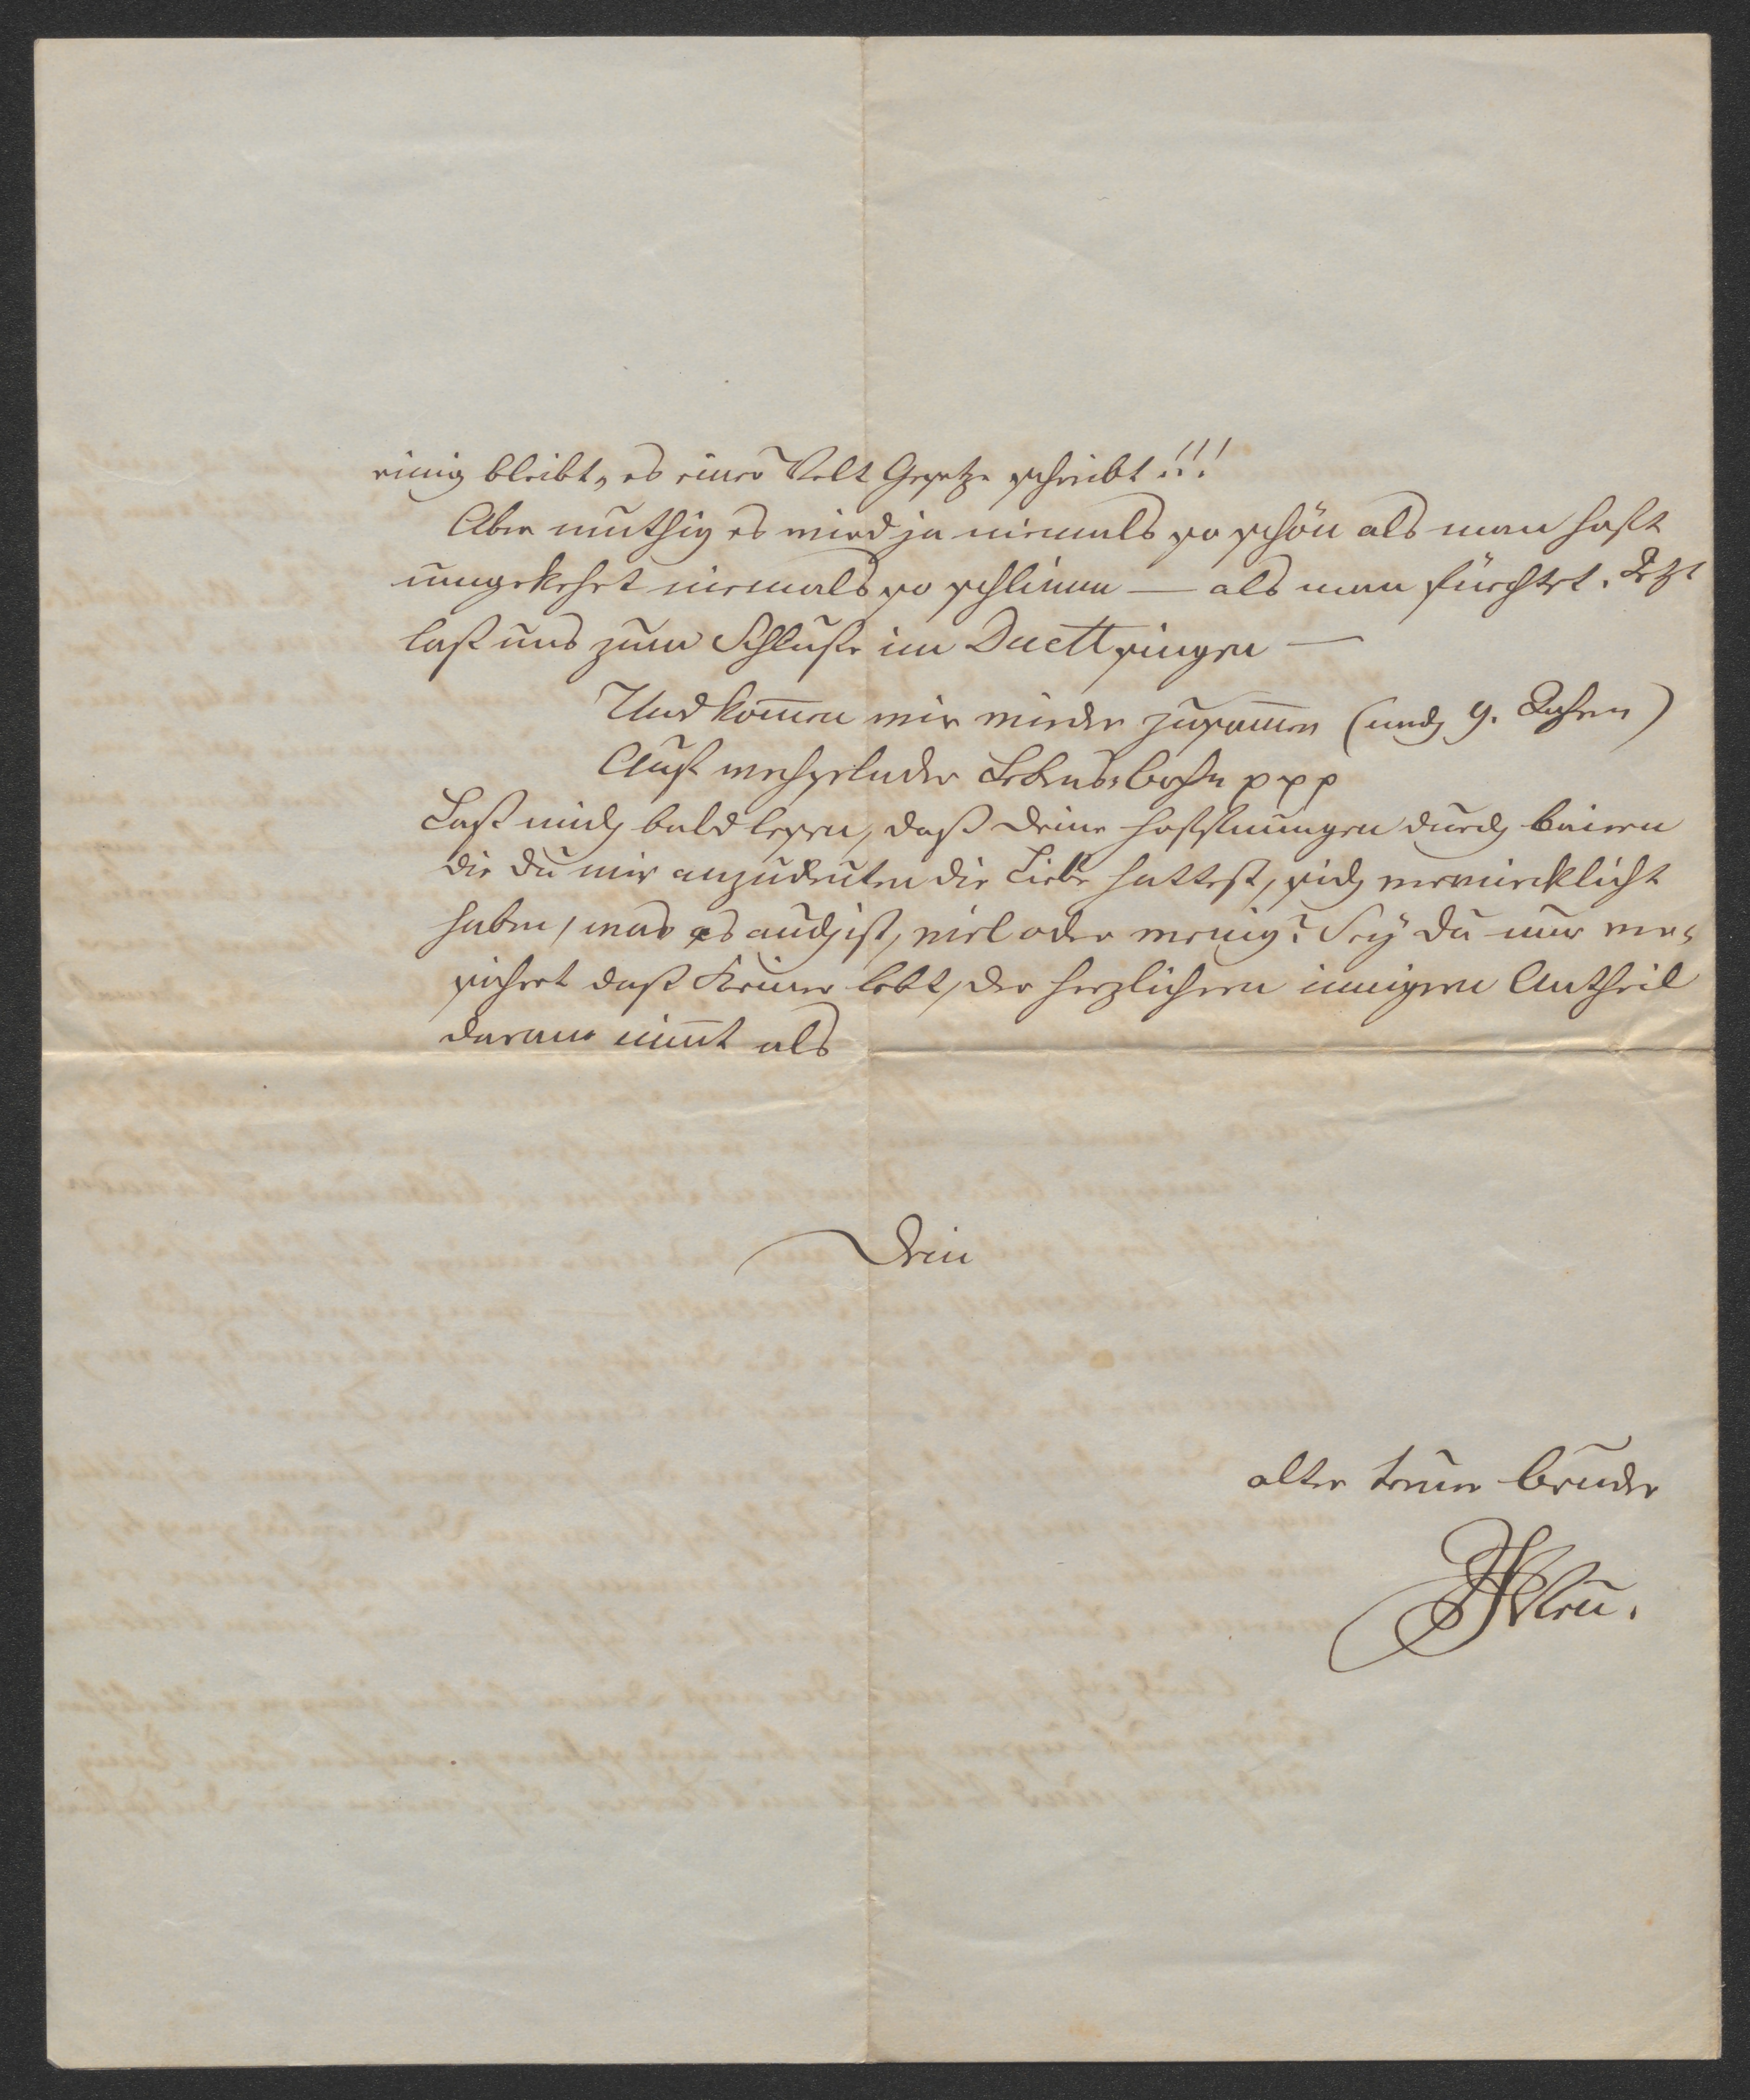 einig bleibt, es einer Welt Gesetze schreibt!!!
Aber muthig es wird ja niemals so schön als man hofft
umgekehrt niemals so schlimm — als man fürchtet. Jetzt
laßt uns zum Schluße im Duett singen —
Und kom̅en wir wieder zusam̅en (nach 9. Jahren)
Auf wechselnder Lebens-bahn ppp
Laß mich bald lesen, daß deine Hoffnungen durch
die du mir anzudeuten die Liebe hattest, sich verwircklicht
haben, was es auch ist, viel oder wenig? Sey du nur ver=
sichert daß Keiner lebt, der herzlichern innigern Antheil
daran nim̅t als
Dein
alter treuer Bruder